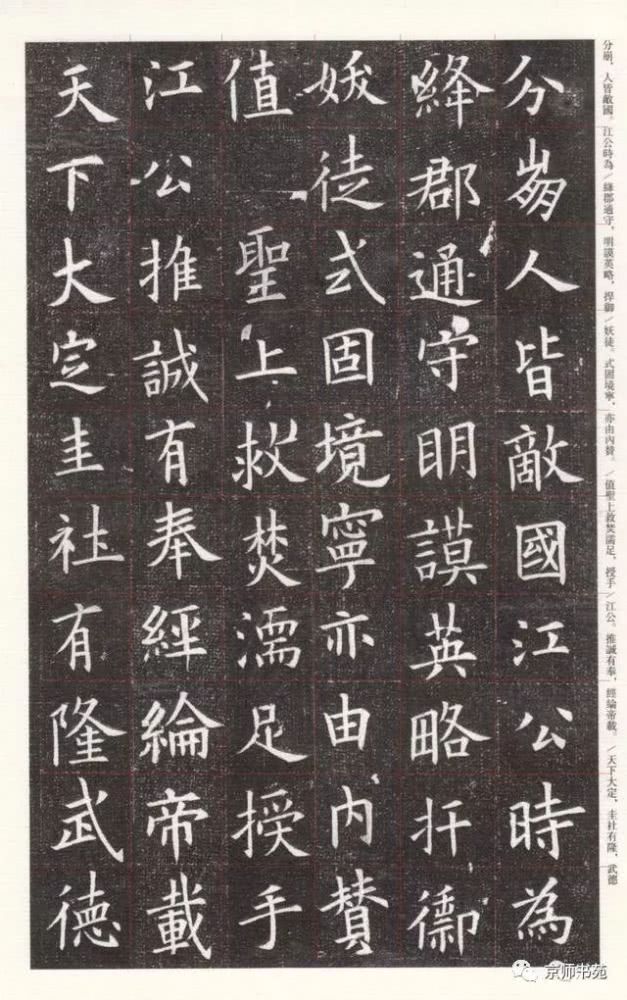 分崩人皆敵國江公時為
絳郡通守明謨英略扞禦
妖徒式固境寧亦由内賛
值聖上救焚濡足授手
江公推誠有奉經綸帝載
天下大定圭社有隆武德
分崩，人皆敵國。江公時為／絳郡通守，明謨英略，捍御／妖徒。式固境寧，亦由内贊。／值聖上救焚濡足，授手／江公。推誠有奉，經綸帝載。／天下大定，圭社有隆，武德
京师书苑